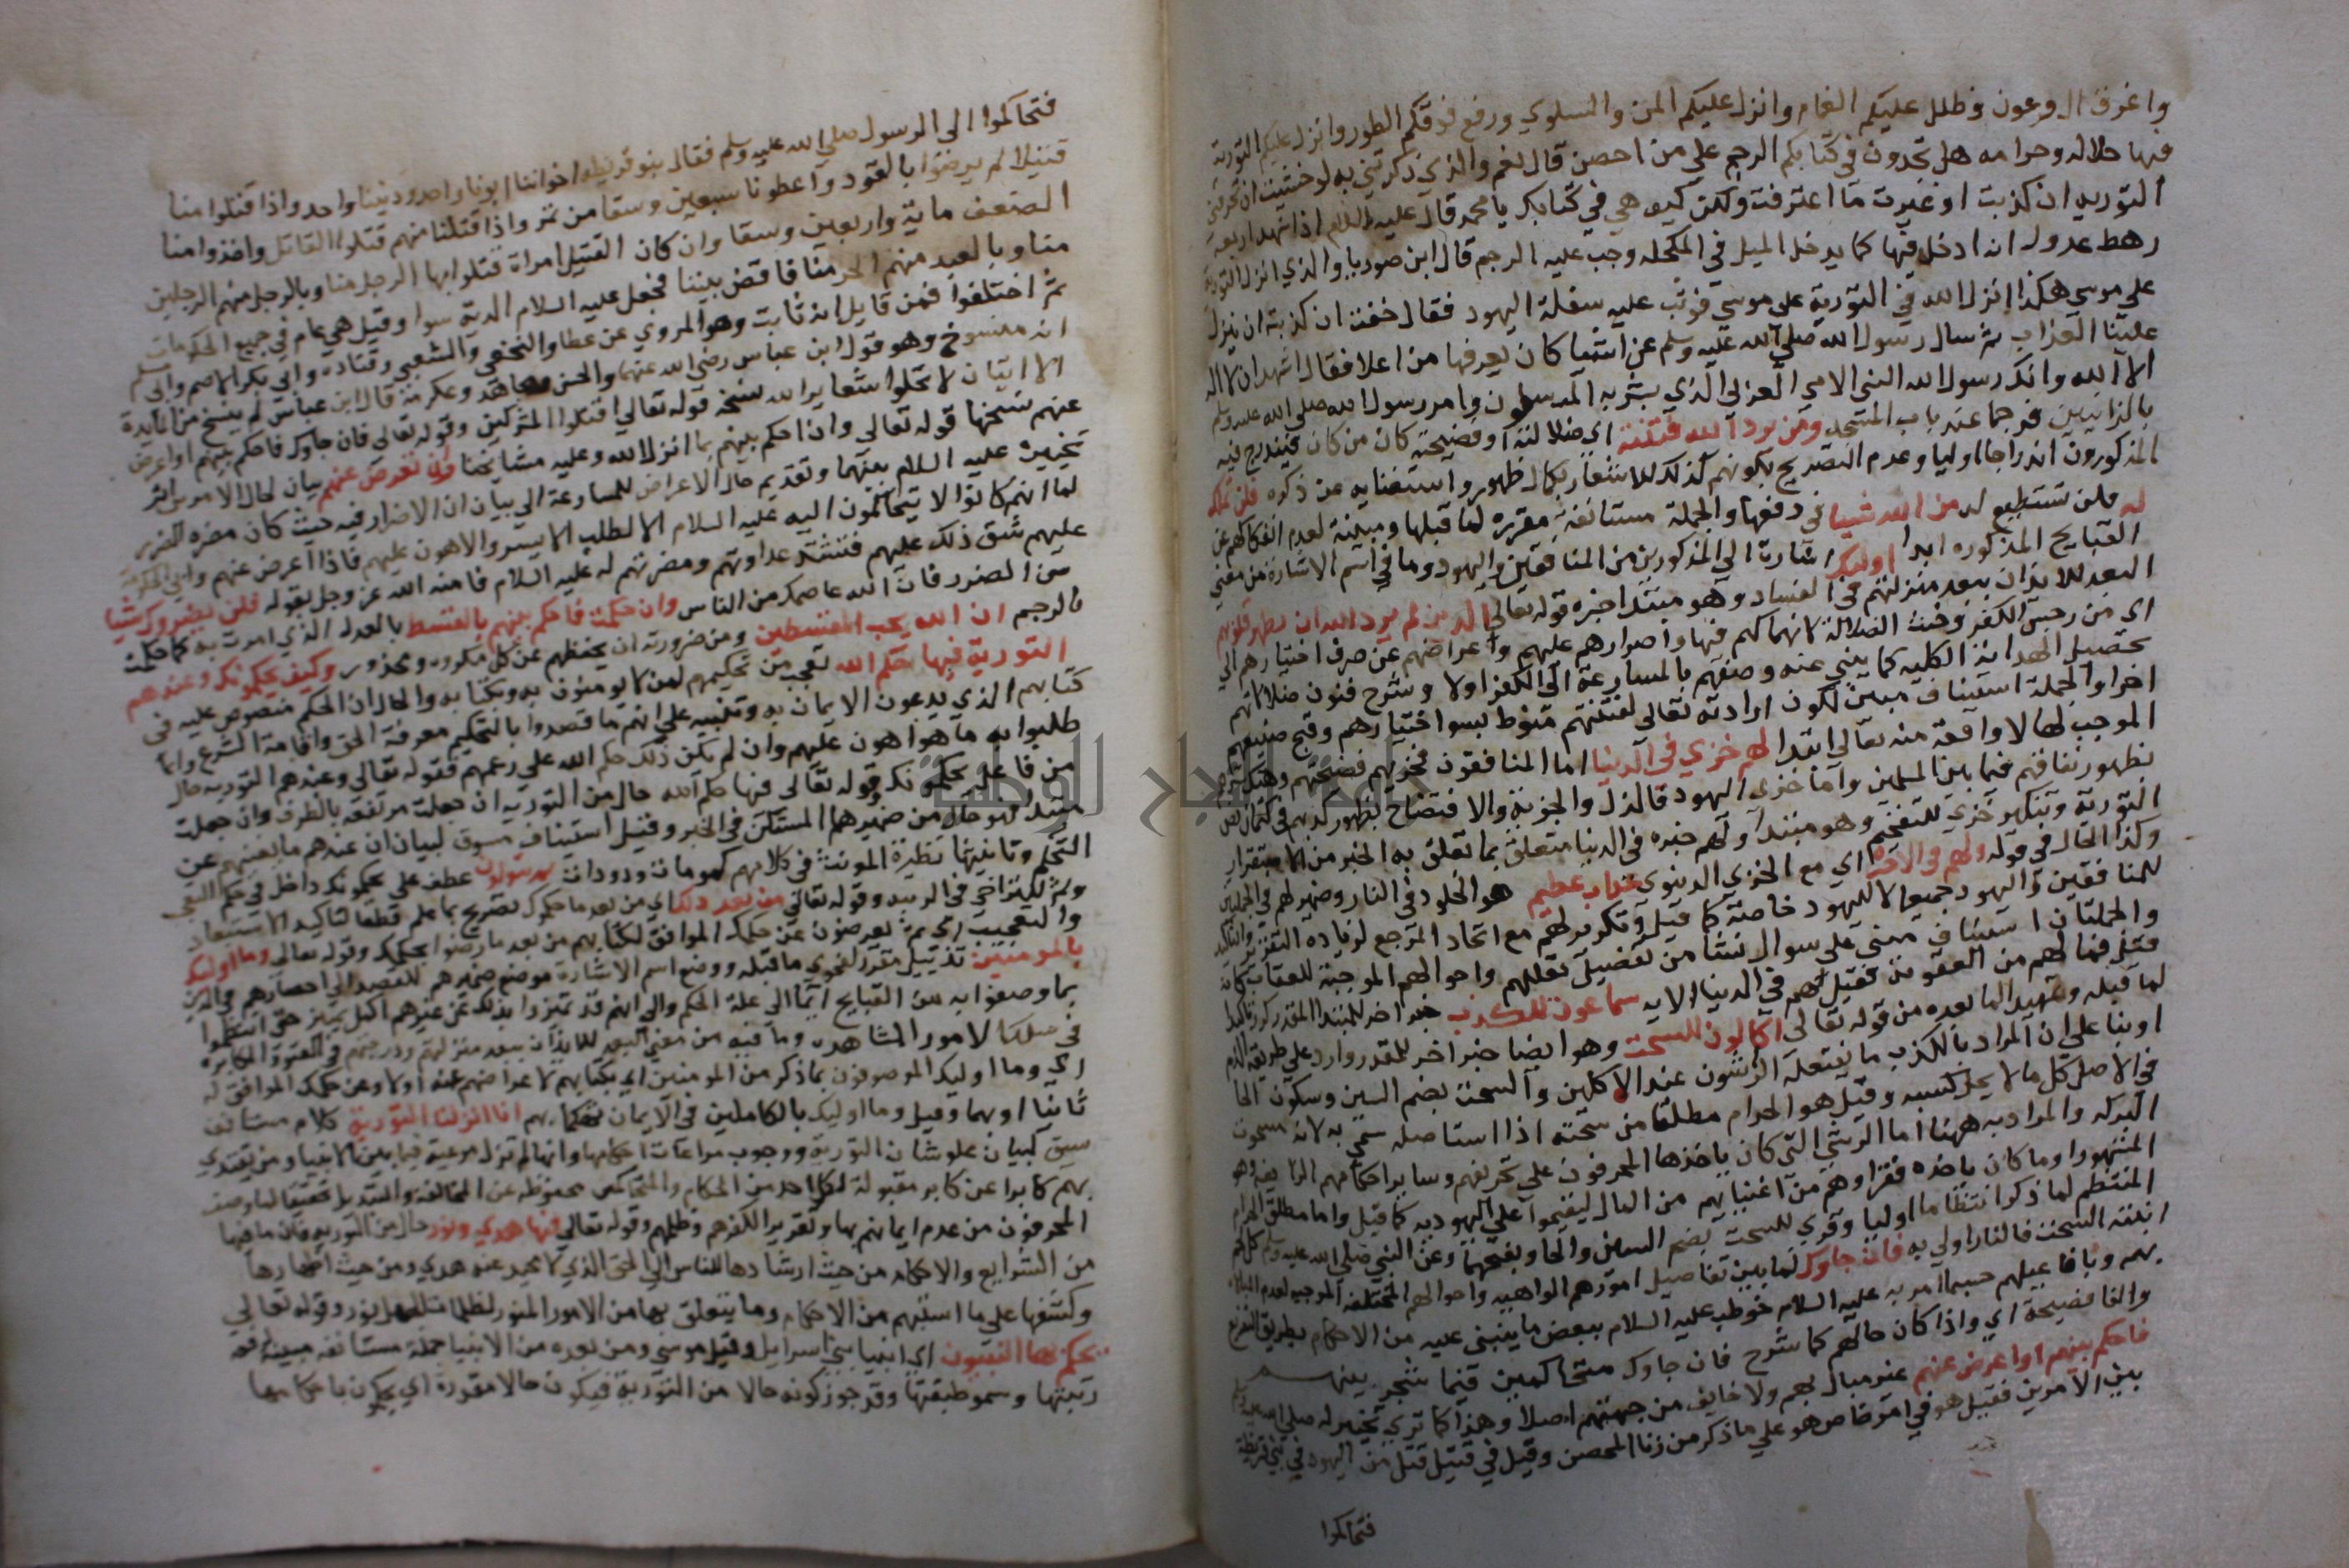 واغرق ال فرعون وظلل عليكم الغمام وانزل عليكم المن والسلوي ورفع فوقكم الطور وانزل عليكم التورية
فيها حلاله وحرامه هل تجدون في كتابكم الرجم علي من احصن قال نعم والذي ذكرتني به لو خشيت ان تحرقني
التوريه ان كذبت او غيرت ما اعترفت ولكن كيف هي في كتابك يا محمد قال عليه السلام اذا شهد اربعة
رهط عدول انه ادخل فيها كما يدخل الميل في المكحله وجب عليه الرجم قال ابن صوريا والذي انزل التورية
علي موسي هكذا انزل الله في التورية علي موسي فوثب عليه سفلة اليهود فقال خفت ان كذبته ان ينزل
علينا العذاب ثم سال رسول الله صلي الله عليه وسلم عن اشيا كان يعرفها من اعلا فقال اشهد ان لا اله
الا الله وانك رسول الله النبي الامي العربي الذي بشر به المرسلون وامر رسول الله صلي الله عليه وسلم
بالزانيين فرجما عند باب المسجد ومن يرد الله فتنته اي ضلالته او فضيحته كان من كان فيندرج فيه
المذكورون اندراجا اوليا وعدم التصريح بكونهم كذلك للاشعار بكمال ظهوره واستغنايه عن ذكره فلن تملك
له فلن تستطيع له من الله شيا في دفعها والجملة مستانفة مقرره لما قبلها ومبينة لعدم انفكاكهم عن
القبايح المذكوره ابدا اوليك اشارة الي المذكورين من المنافقين واليهود وما في اسم الاشارة من معني
البعد للايذان ببعد منزلتهم في الفساد وهو مبتدا خبره قوله تعالي الذين لم يرد الله ان يطهر قلوبهم
اي من رجس الكفر وخبث الضلالة لانهماكهم فيها واصرارهم عليهم واعراضهم عن صرف اختيارهم الي
تحصيل الهداية الكليه كما ينبي عنه وصفهم بالمسارعة الي الكفر اولا وشرح فنون ضلالاتهم
اخرا والجملة استيناف مبين لكون ارادته تعالي لفتنتهم منوط بسوا ختيارهم وقبح صنيعهم
الموجب لها لا واقعة منه تعالي ابتدا لهم خزي في الدنيا اما المنافقون فخزيهم فضيحتهم وهتك
بظهور نفاقهم فيما بين المسلمين واما خزي اليهود فالذل والجزية والافتضاح بظهور كذبهم في كتمان نص
التورية وتنكير خزي للتفخيم وهو مبتدا ولهم خبره في الدنيا متعلق بما تعلق به الخبر من الاستقرار
وكذا الحال في قوله ولهم في الاخره اي مع الخزي الدنيوي عذاب عظيم هو الخلود في النار وضمير لهم في الجملتين
للمنافقين واليهود جميعا لا لليهود خاصة كما قيل وتكرير لهم مع اتحاد المرجع لزياده التقرير والتاكيد
والجملتان استيناف مبني علي سوال نشا من تفصيل افعالهم واحوالهم الموجبة للعقاب كانه
قيل فما لهم من العقوبة فقيل لهم في الدنيا الايه سماعون للكذب خبر اخر للمبتدا المقدر كرر تاكيدا
لما قبله وتمهيدا لما بعده من قوله تعالي اكالون للسحت وهو ايضا خبر اخر للمقدر وارد علي طريقة الذم
او بنا علي ان المراد بالكذب ما يفتعله الراشون عند الاكلين والسحت بضم السين وسكون الحا
في الاصل كل ما لا يحل كسبه وقيل هو الحرام مطلقا من سحته اذا استاصله سمي به لانه مسحوت
البركه والمراد به ههنا اما الرشي التي كان ياخذها المحرفون علي تحريفهم وساير احكامهم الزايغه وهو
المشهور او ما كان ياخذه فقراوهم من اغنيايهم من المال ليقيموا علي اليهوديه كما قيل واما مطلق الحرام
المنتظم لما ذكر انتظاما اوليا وقري للسحت بضم السين والحا وبفتحهما وعن النبي صلي الله عليه وسلم كل لحم
انبته السحت فالنار اولي به فان جاوك لما بين تفاصيل امورهم الواهيه واحوالهم المختلفه الموجبه لعدم المبالاه
بهم وبافاعيلهم حسبما امر به عليه السلام خوطب عليه السلام ببعض ما يبتني عليه من الاحكام بطريق التفريع
والفا فصيحة اي واذا كان حالهم كما شرح فان جاوك متحاكمين فيما شجر بينهم
فاحكم بينهم او اعرض عنهم غير مبال بهم ولا خايف من جهتهم اصلا وهذا كما تري تخيير له صلي الله عليه وسلم
بين الامرين فقيل هو في امر خاص هو علي ما ذكر من زنا المحصن وقيل في قتيل قتل من اليهود في بني قريظة
فتحاكموا
فتحاكموا الي الرسول صلي الله عليه وسلم فقال بنو قريظه اخواننا ابونا واحد وديننا واحد واذا قتلوا منا
قتيلا لم يرضوا بالقود واعطونا سبعين وسقا من تمر واذا قتلنا منهم قتلوا القاتل واخذوا منا
الضعف ماية واربعين وسقا وان كان القتيل امراة قتلوا بها الرجل منا وبالرجل منهم الرجلين
منا وبالعبد منهم الحر منا فاقض بيننا فجعل عليه السلام الدية سوا وقيل هي عام في جميع الحكومات
ثم اختلفوا فمن قايل انه ثابت وهو المروي عن عطا والنخعي والشعبي وقتاده وابي بكر الاصم وابي مسلم
انه منسوخ وهو قول ابن عباس رضي الله عنهما والحسن ومجاهد وعكرمة قال ابن عباس لم ينسخ من المايدة
الا ايتان لا تحلوا شعاير الله نسخه قوله تعالي اقتلوا المشركين وقوله تعالي فان جاوك فاحكم بينهم او اعرض
عنهم نسخها قوله تعالي وان احكم بينهم بما انزل الله وعليه مشايخنا وان تعرض عنهم بيان لحال الامرين اثر
تخييره عليه السلام بينهما وتقديم حال الاعراض للمسارعة الي بيان ان لا ضرار فيه حيث كان مضره الضرر
لما انهم كانوا لا يتحاكمون اليه عليه السلام الا لطلب الايسر والاهون عليهم فاذا اعرض عنهم وابي الحكومة
عليهم شق ذلك عليهم فتشتد عداوتهم ومضرتهم له عليه السلام فامنه الله عز وجل بقوله فلن يضروك شيا
من الضرر فان الله عاصمك من الناس وان حكمت فاحكم بينهم بالقسط بالعدل الذي امرت به كما حكمت
بالرجم ان الله يحب المقسطين ومن ضرورته ان يحفظهم عن كل مكروه ومحذور وكيف يحكمونك وعندهم
التورية فيها حكم الله تعجيب من تحكيمهم لمن لا يومنون به وبكتابه والحال ان الحكم منصوص عليه في
كتابهم الذي يدعون الايمان به وتنبيه علي انهم ما قصدوا بالتحكيم معرفة الحق واقامة الشرع وانما
طلبوا به ما هو اهون عليهم وان لم يكن ذلك حكم الله علي زعمهم فقوله تعالي وعندهم التوريه حال
من فاعل يحكمونك قوله تعالي فيها حكم الله حال من التوريه ان جعلت مرتفعه بالظرف وان جعلت
مبتدا فهو حال من ضميرها المستكن في الخبر وقيل استيناف مسوق لبيان ان عندهم ما يغنيهم عن
التحكيم وتانيثها نظيرة المونث في كلامهم كموماة ودوداة ثم يتولون عطف علي يحكمونك داخل في حكم التعجيب
وثم للتراخي في الرتبه وقوله تعالي من بعد ذلك اي من بعد ما حكموك تصريح بما علم قطعا لتاكيد الاستبعاد
والتعجيب اي ثم يعرضون عن حكمك الموافق لكتابهم من بعد ما رضوا بحكمك وقوله تعالي وما اوليك
بالمومنين تذييل مقرر لفحوي ما قبله ووضع اسم الاشارة موضع ضميرهم للقصد الي احضارهم في الذهن
بما وصفوا به من القبايح ايما الي علة الحكم والي انهم قد تميزوا بذلك عن غيرهم اكمل تميز حتي انتظموا
في سلك الامور المشاهده وما فيه من معني البعد للايذان ببعد منزلتهم ودرجتهم في العتو والمكابره
اي وما اوليك الموصوفون بما ذكر من المومنين اي بكتابهم لاعراضهم عنه اولا وعن حكمك الموافق له
ثانيا او بهما وقيل وما اوليك بالكاملين في الايمان تهكما بهم انا انزلنا التورية كلام مستانف
سيق لبيان علو شان التورية ووجوب مراعات احكامها وانها لم تزل مرعية فيما بين الانبيا ومن يقتدي
بهم كابرا عن كابر مقبولة لكل احد من الحكام والمتحاكمين محفوظه عن المخالفه والتبديل تحقيقا لما وصف
المحرفون من عدم ايمانهم بها وتقريرا لكفرهم وظلمهم وقوله تعالي فيها هدي ونور حال من التوريه فان ما فيها
من الشرايع والاحكام من حيث ارشادها للناس الي الحق الذي لا محيد عنه هدي ومن حيث اظهارها
وكشفها علي ما استبهم من الاحكام وما يتعلق بها من الامور المستوره بظلمات الجهل نور وقوله تعالي
يحكم بها النبيون اي انبيا بني اسرايل وقيل موسي ومن بعده من الانبيا جملة مستانفه مبينة لرفعه
رتبتها وسمو طبقتها وقد جوز كونه حالا من التورية فيكون حالا مقدرة اي يحكمون باحكامها
جامعة النجاح الوطنية